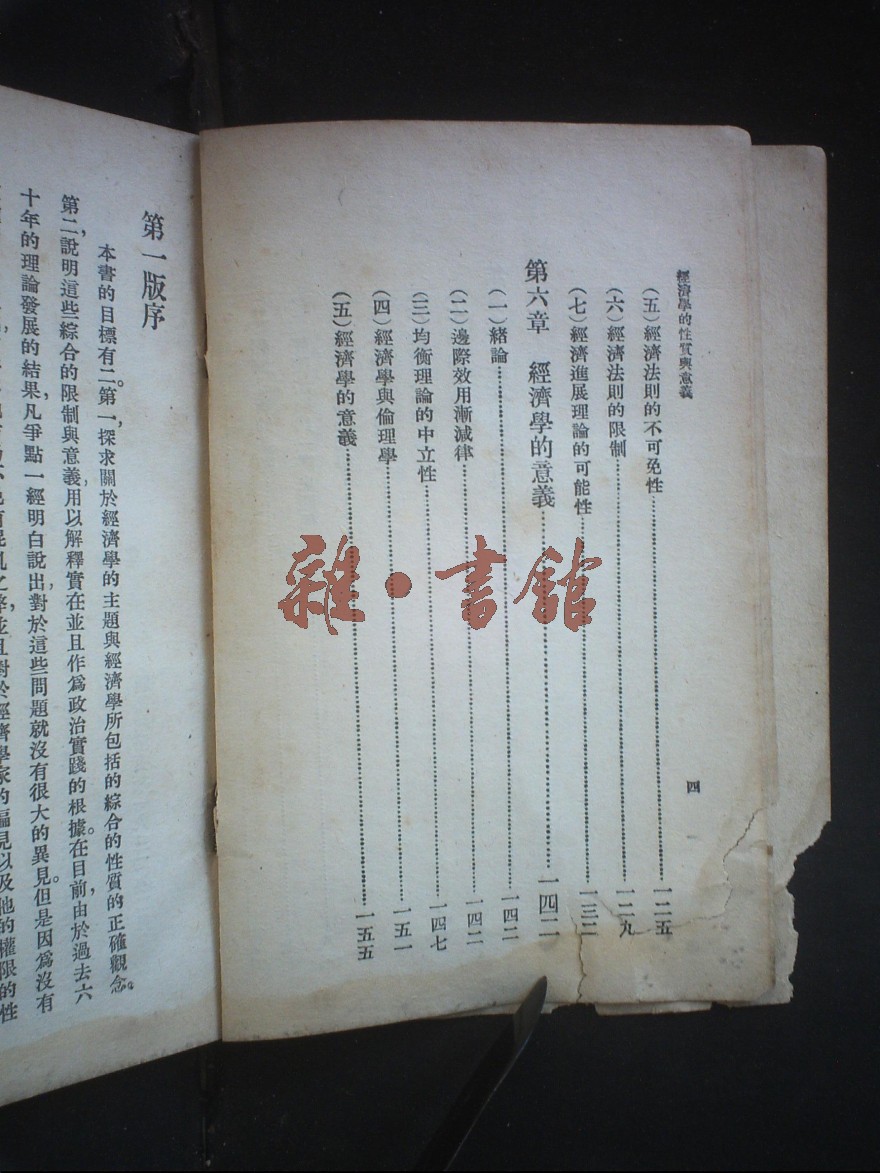 經濟學的性質與意義
四
(五)經濟法則的不可免性……一二五
(六)經濟法則的限制……一二九
(七)經濟進展理論的可能性……一三二
第六章 經濟學的意義……一四二
(一)緒論……一四二
(二)邊際效用漸減律……一四二
(三)均衡理論的中立性……一四七
(四)經濟學與倫理學……一五一
(五)經濟學的意義……一五五
第一版序
本書的目標有二。第一,探求關於經濟學的主題與經濟學所包括的綜合的性質的正確觀念。
第二,說明這些綜合的限制與意義,用以解釋實在並且作爲政治實踐的根據。在目前,由於過去六
十年的理論發展的結果,凡爭點一經明白說出,對於這些問題就沒有很大的異見。但是因爲沒有
並且對於經濟學家的偏見以及他的權限的性
雜·書館